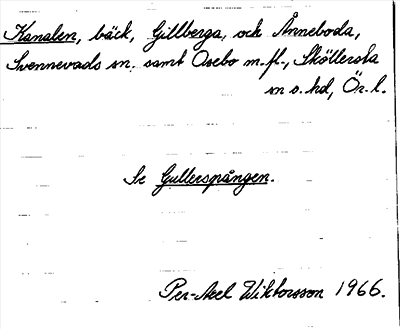 Kanalen, bäck, Gillberga, och Ånneboda,
Svennevads sn. samt Osebo m.fl., Sköllersta
sn o. hd, Ör. l.
Se Gullerspången.
Per-Axel Wiktorsson 1966.